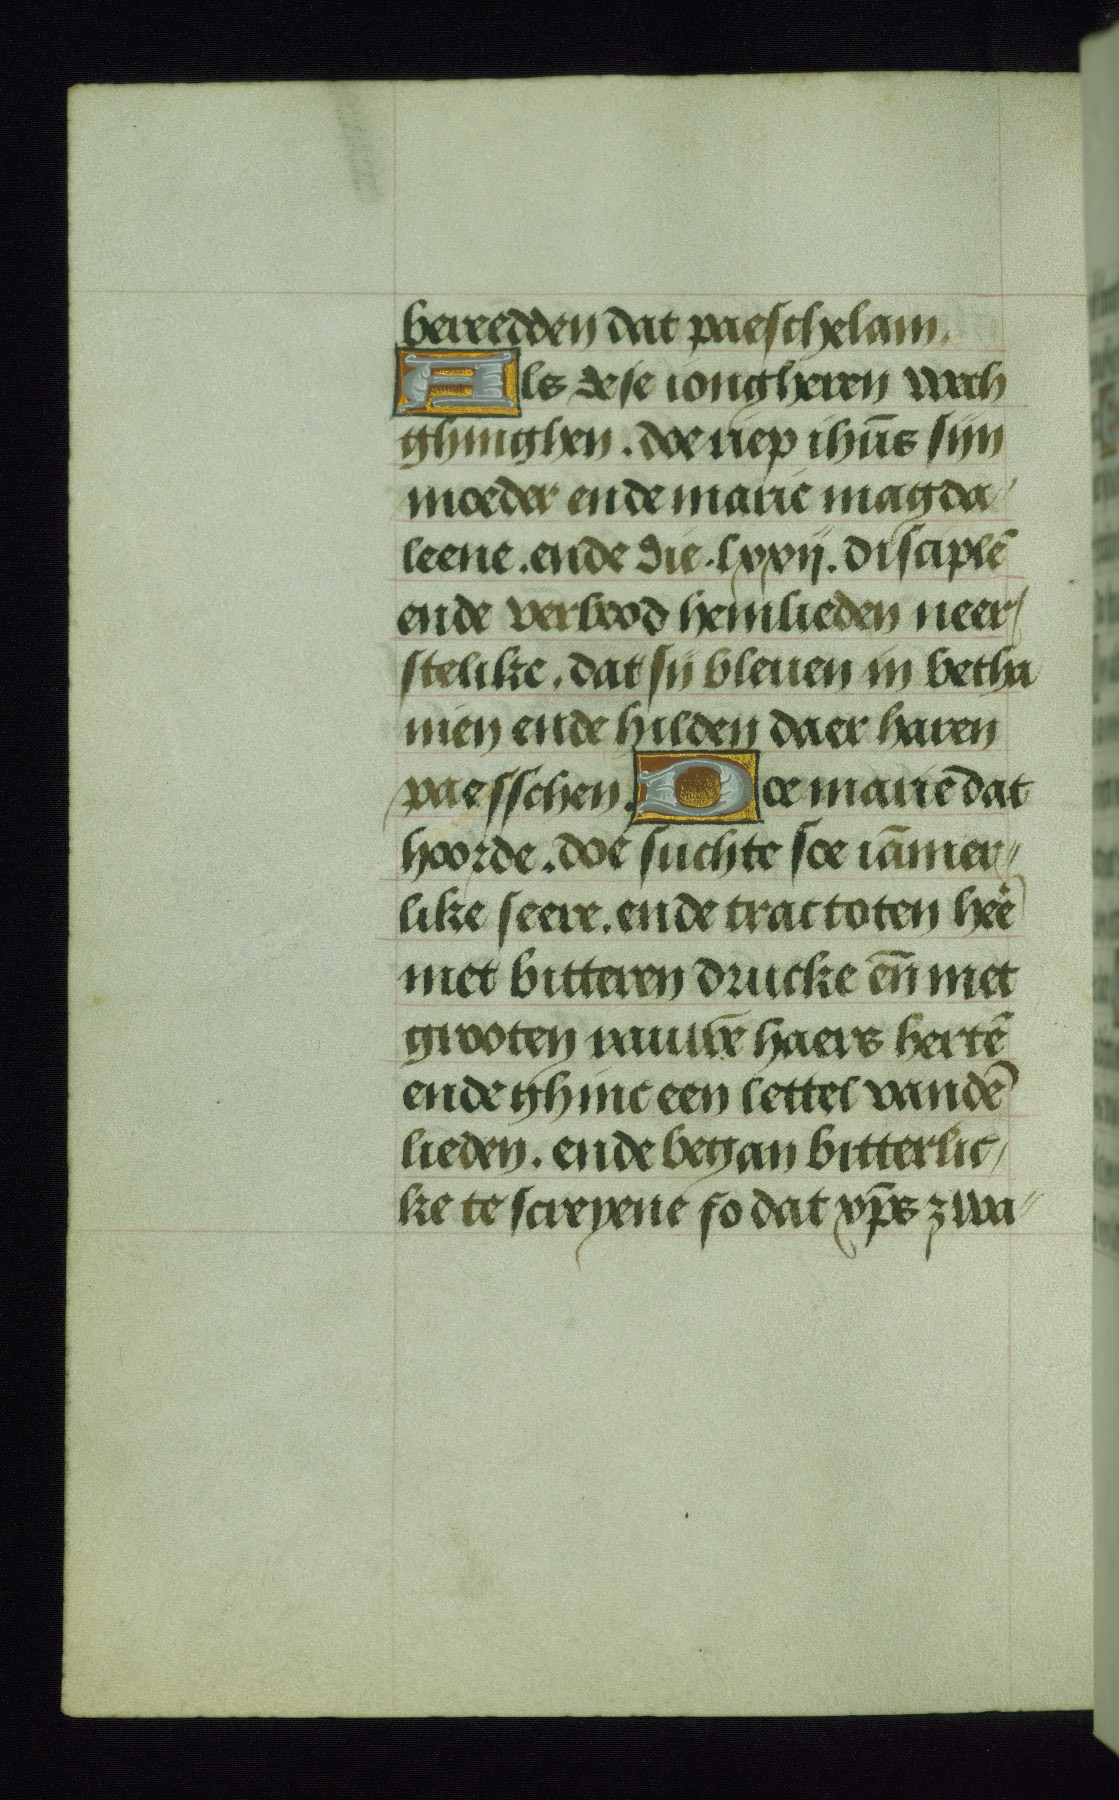 bereedden dat paeschelam.
Als dese iongheren wech
ghinghen. doe riep ihūs sijn
moeder ende marie magda
leene. ende die .lxxij. disciplē
ende verbood hemlieden neer
stelike. dat sij bleuen in betha
nien ende hilden daer haren
paesschen. Doe mariē dat
hoorde. doe suchte soe iāmer
like seere. ende tractoten heē
met bitteren drucke eñ met
grooten rauwē haers hertē
ende ghinc een lettel vandē
lieden. ende began bitterlic
ke te screyene so dat xp̄s zwa